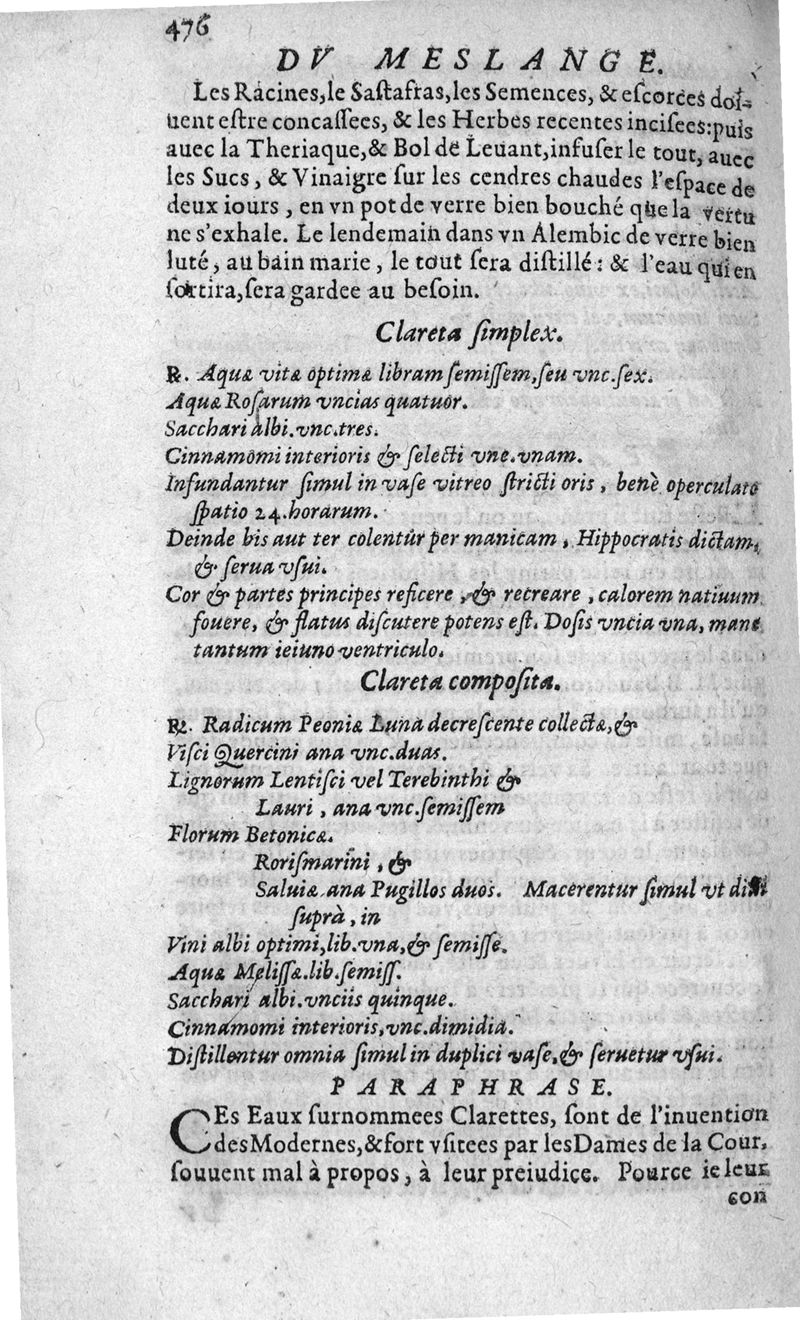 476
DV MESLANGE.
Les Racines, le Sastafras, les Semences, & escorces doi-
uent estre concassees, & les Herbes recentes incisees: puis
auec la Theriaque, & Bol de Leuant, infuser le tout, auec
les Sucs, & Vinaigre sur les cendres chaudes l'espace de
deux iours, en vn pot de verre bien bouché que la vertu
ne s'exhale. Le lendemain dans vn Alembic de verre bien
luté, au bain marie, le tout sera distillé: & l'eau qui en
sortira, sera gardee au besoin.
Clareta simplex.
℞. Aquæ vitæ optimæ libram semissem, seu vnc. sex.
Aquæ Rosarum vncias quatuor.
Sacchari albi. vnc. tres.
Cinnamomi interioris & selecti vnc. vnam.
Infundantur simul in vase vitreo stricti oris, benè operculato
spatio 24. horarum.
Deinde bis aut ter colentur per manicam, Hippocratis dictam,
& serua vsui.
Cor & partes principes reficere, & recreare, calorem natiuum
fouere, & flatus discutere potens est. Dosis vncia vna, mane
tantum ieiuno ventriculo.
Clareta composita.
℞. Radicum Peoniæ Luna decrescente collectæ, &
Visci Quercini ana vnc. duas.
Lignorum Lentisci vel Terebinthi &
Lauri, ana vnc. semissem
Florum Betonicæ.
Rorismarini, &
Saluiæ ana Pugillos duos. Macerentur simul vt
suprà, in
Vini albi optimi, lib. vna, & semisse.
Aquæ Melissæ. lib. semiss.
Sacchari albi. vnciis quinque.
Cinnamomi interioris, vnc. dimidia.
Distillentur omnia simul in duplici vase, & seruetur vsui.
PARAPHRASE.
CEs Eaux surnommees Clarettes, sont de l'inuention
des Modernes, & fort vsitees par les Dames de la Cour,
souuent mal à propos, à leur preiudice. Pource ie leur
con